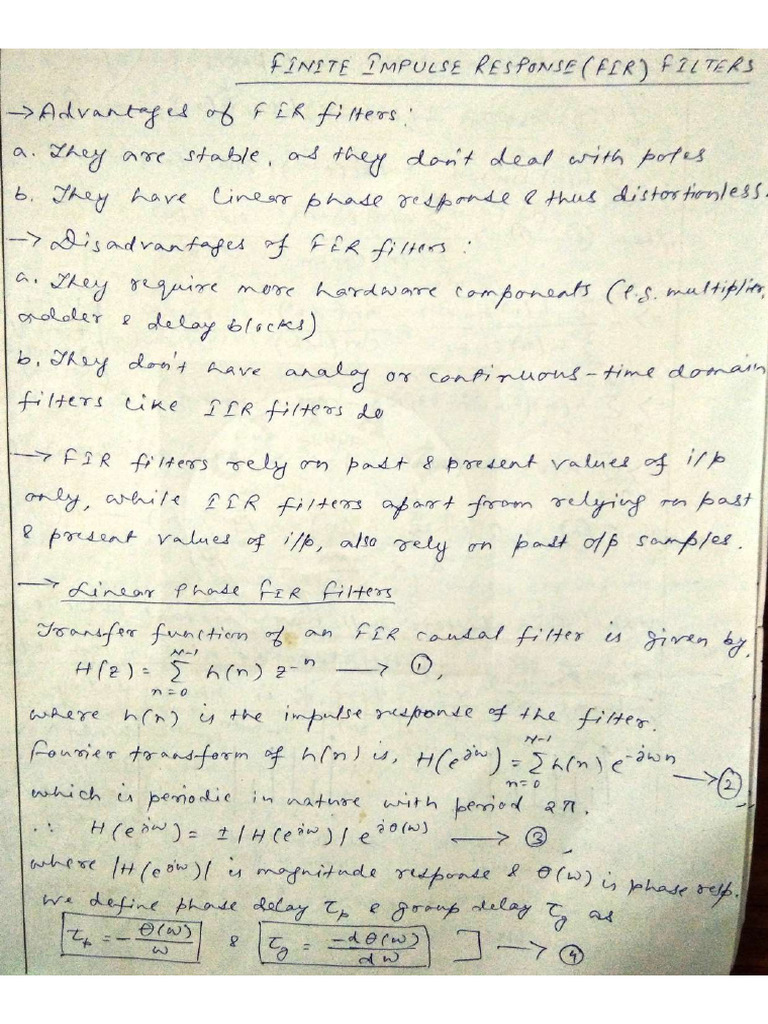 FINITE IMPULSE RESPONSE (FIR) FILTERS
→ Advantages of FIR filters:
a. They are stable, as they don't deal with poles
b. They have linear phase response & thus distortionless.
→ Disadvantages of FIR filters:
a. They require more hardware components (e.g. multiplier,
adder & delay blocks)
b. They don't have analog or continuous-time domain
filters like IIR filters do
→ FIR filters rely on past & present values of i/p
only, while IIR filters apart from relying on past
& present values of i/p, also rely on past o/p samples.
→ Linear Phase FIR Filters
Transfer function of an FIR causal filter is given by,
H(z) = Σ_{n=0}^{N-1} h(n) z^{-n} → ①,
where h(n) is the impulse response of the filter.
Fourier transform of h(n) is, H(e^{jω}) = Σ_{n=0}^{N-1} h(n) e^{-jωn} → ②,
which is periodic in nature with period 2π.
∴ H(e^{jω}) = ± |H(e^{jω})| e^{jθ(ω)} → ③,
where |H(e^{jω})| is magnitude response & θ(ω) is phase resp.
We define phase delay τ_p & group delay τ_g as
τ_p = -θ(ω)/ω & τ_g = -dθ(ω)/dω ] → ④